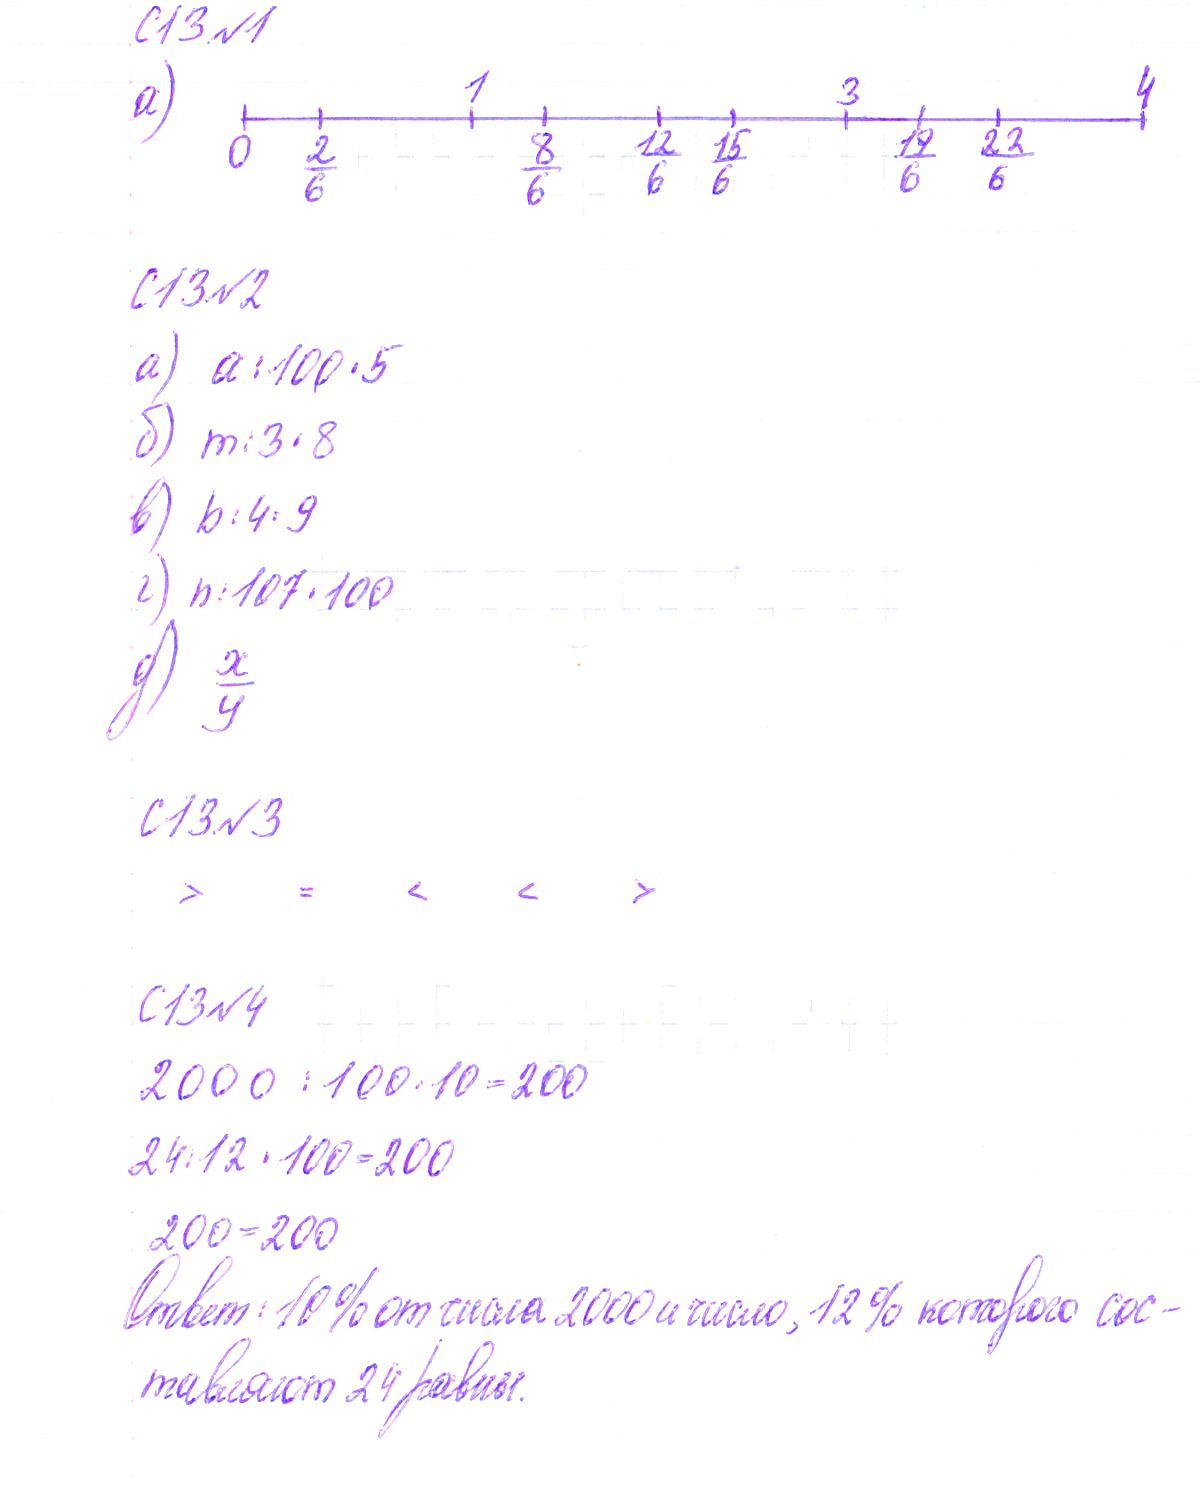 С13 №1
а) 1 3 4
0 2/6 8/6 12/6 15/6 19/6 22/6
С13 №2
а) a:100·5
б) m:3·8
в) b:4·9
г) n:107·100
д) x/y
С13 №3
> = < < >
С13 №4
2000 :100·10=200
24:12·100=200
200=200
Ответ: 10% от числа 2000 и число, 12% которого сос-
тавляют 24 равны.